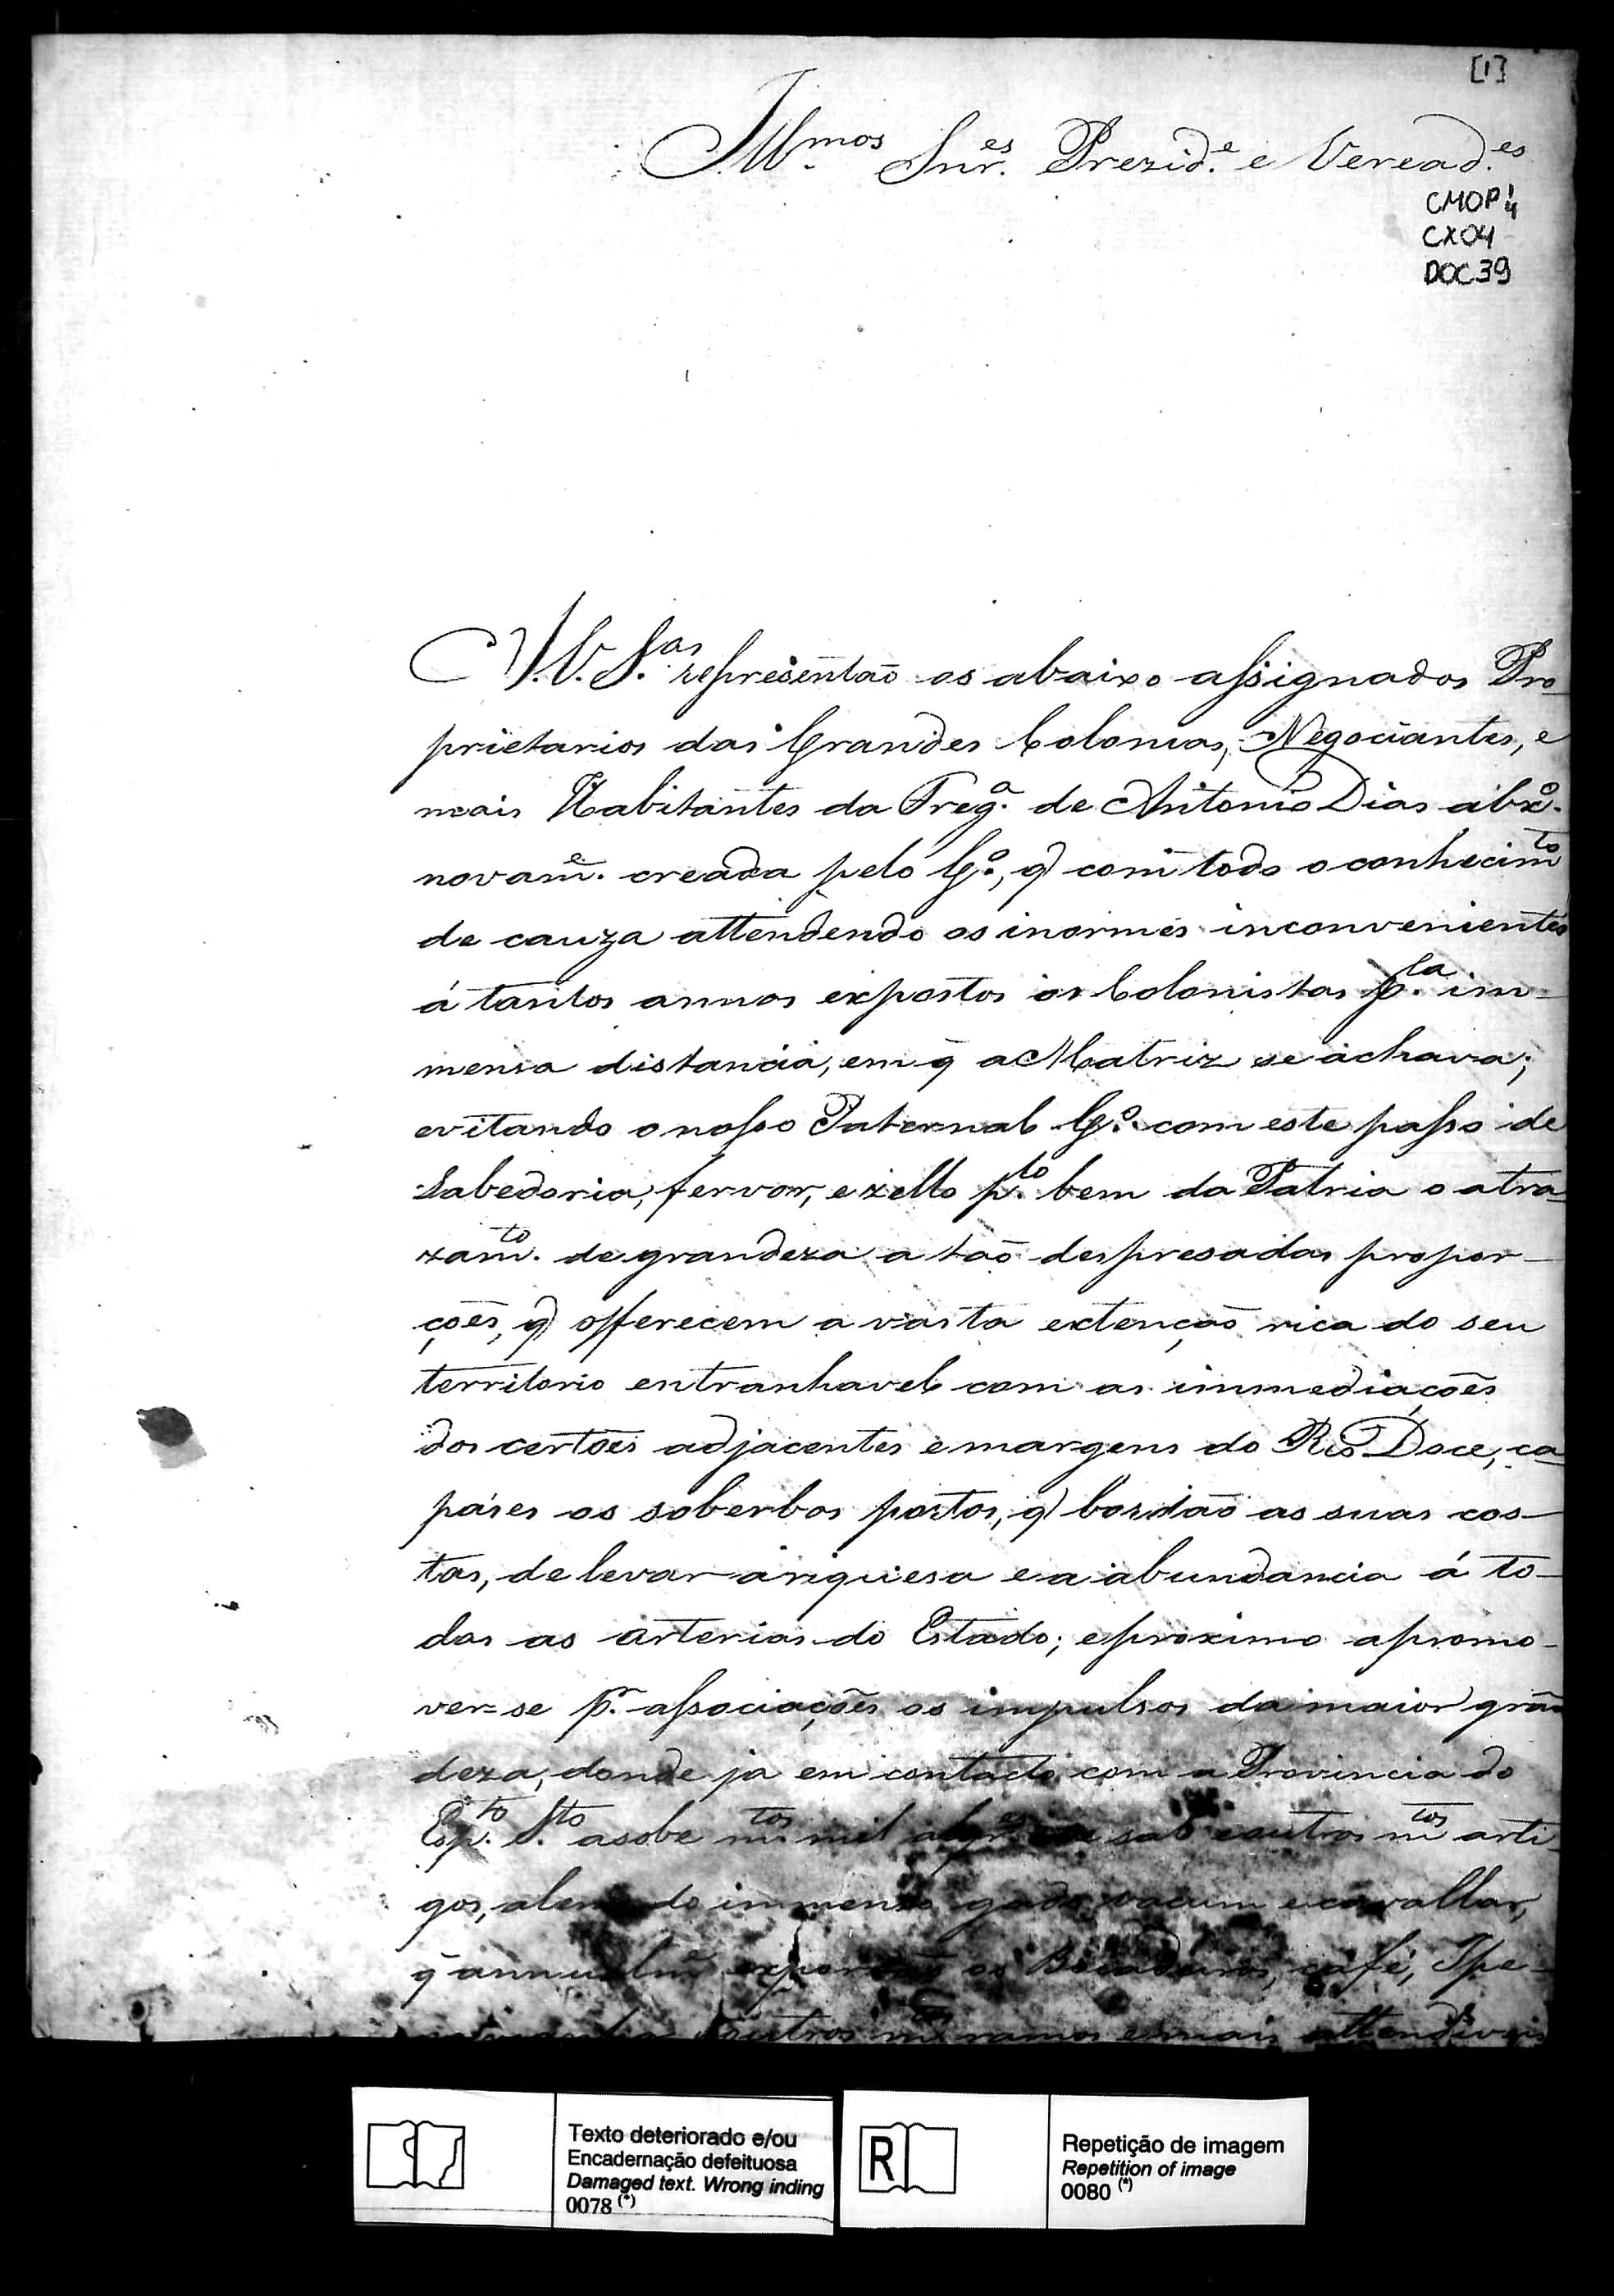 [1]
Illmos Snres Prezide e Vereades
CMOP 1/4
CX04
DOC39
A V.V. Sas represêntaõ os abaixo assignados Pro-
prietarios das Grandes Colonias, Negociantes, e
mais Habitantes da Frega. de Antonio Dias abxo.
novame. creada pelo Go., q com todo o conhecimto
de cauza attendendo os inormes inconvenientes
á tantos annos expostos os Colonistas pla. im-
mensa distancia, em q̃ a Matriz se achava;
evitando o nosso Paternal Go. com este passo de
Sabedoria, fervor, e zello plo. bem da Patria o atra-
zamto. de grandeza a taõ despresadas propor-
çoẽs, q offerecem a vasta extençaõ rica do seu
territorio entranhavel com as immediaçoẽs
dos certoẽs adjacentes e margens do Rio Doce, ca-
páses os soberbos portos, q bordaõ as suas cos-
tas, de levar a riquesa e a abundancia á to-
das as arterias do Estado; e proximo a promo-
ver=se pr. associaçoẽs os impulsos da maior gran
deza, donde ja em contacto com a Provincia do
Espto. Sto a sobe mtos. mil alqres de sal e outros mtos arti-
gos, alem do immenso gado vacum e cavallar,
q̃ annualme exportaõ os Boiadeiros, café, Ipe-
outros ms ramos e mais attendiveis
Texto deteriorado e/ou
Encadernação defeituosa
Damaged text. Wrong inding
0078 (*)
R
Repetição de imagem
Repetition of image
0080 (*)